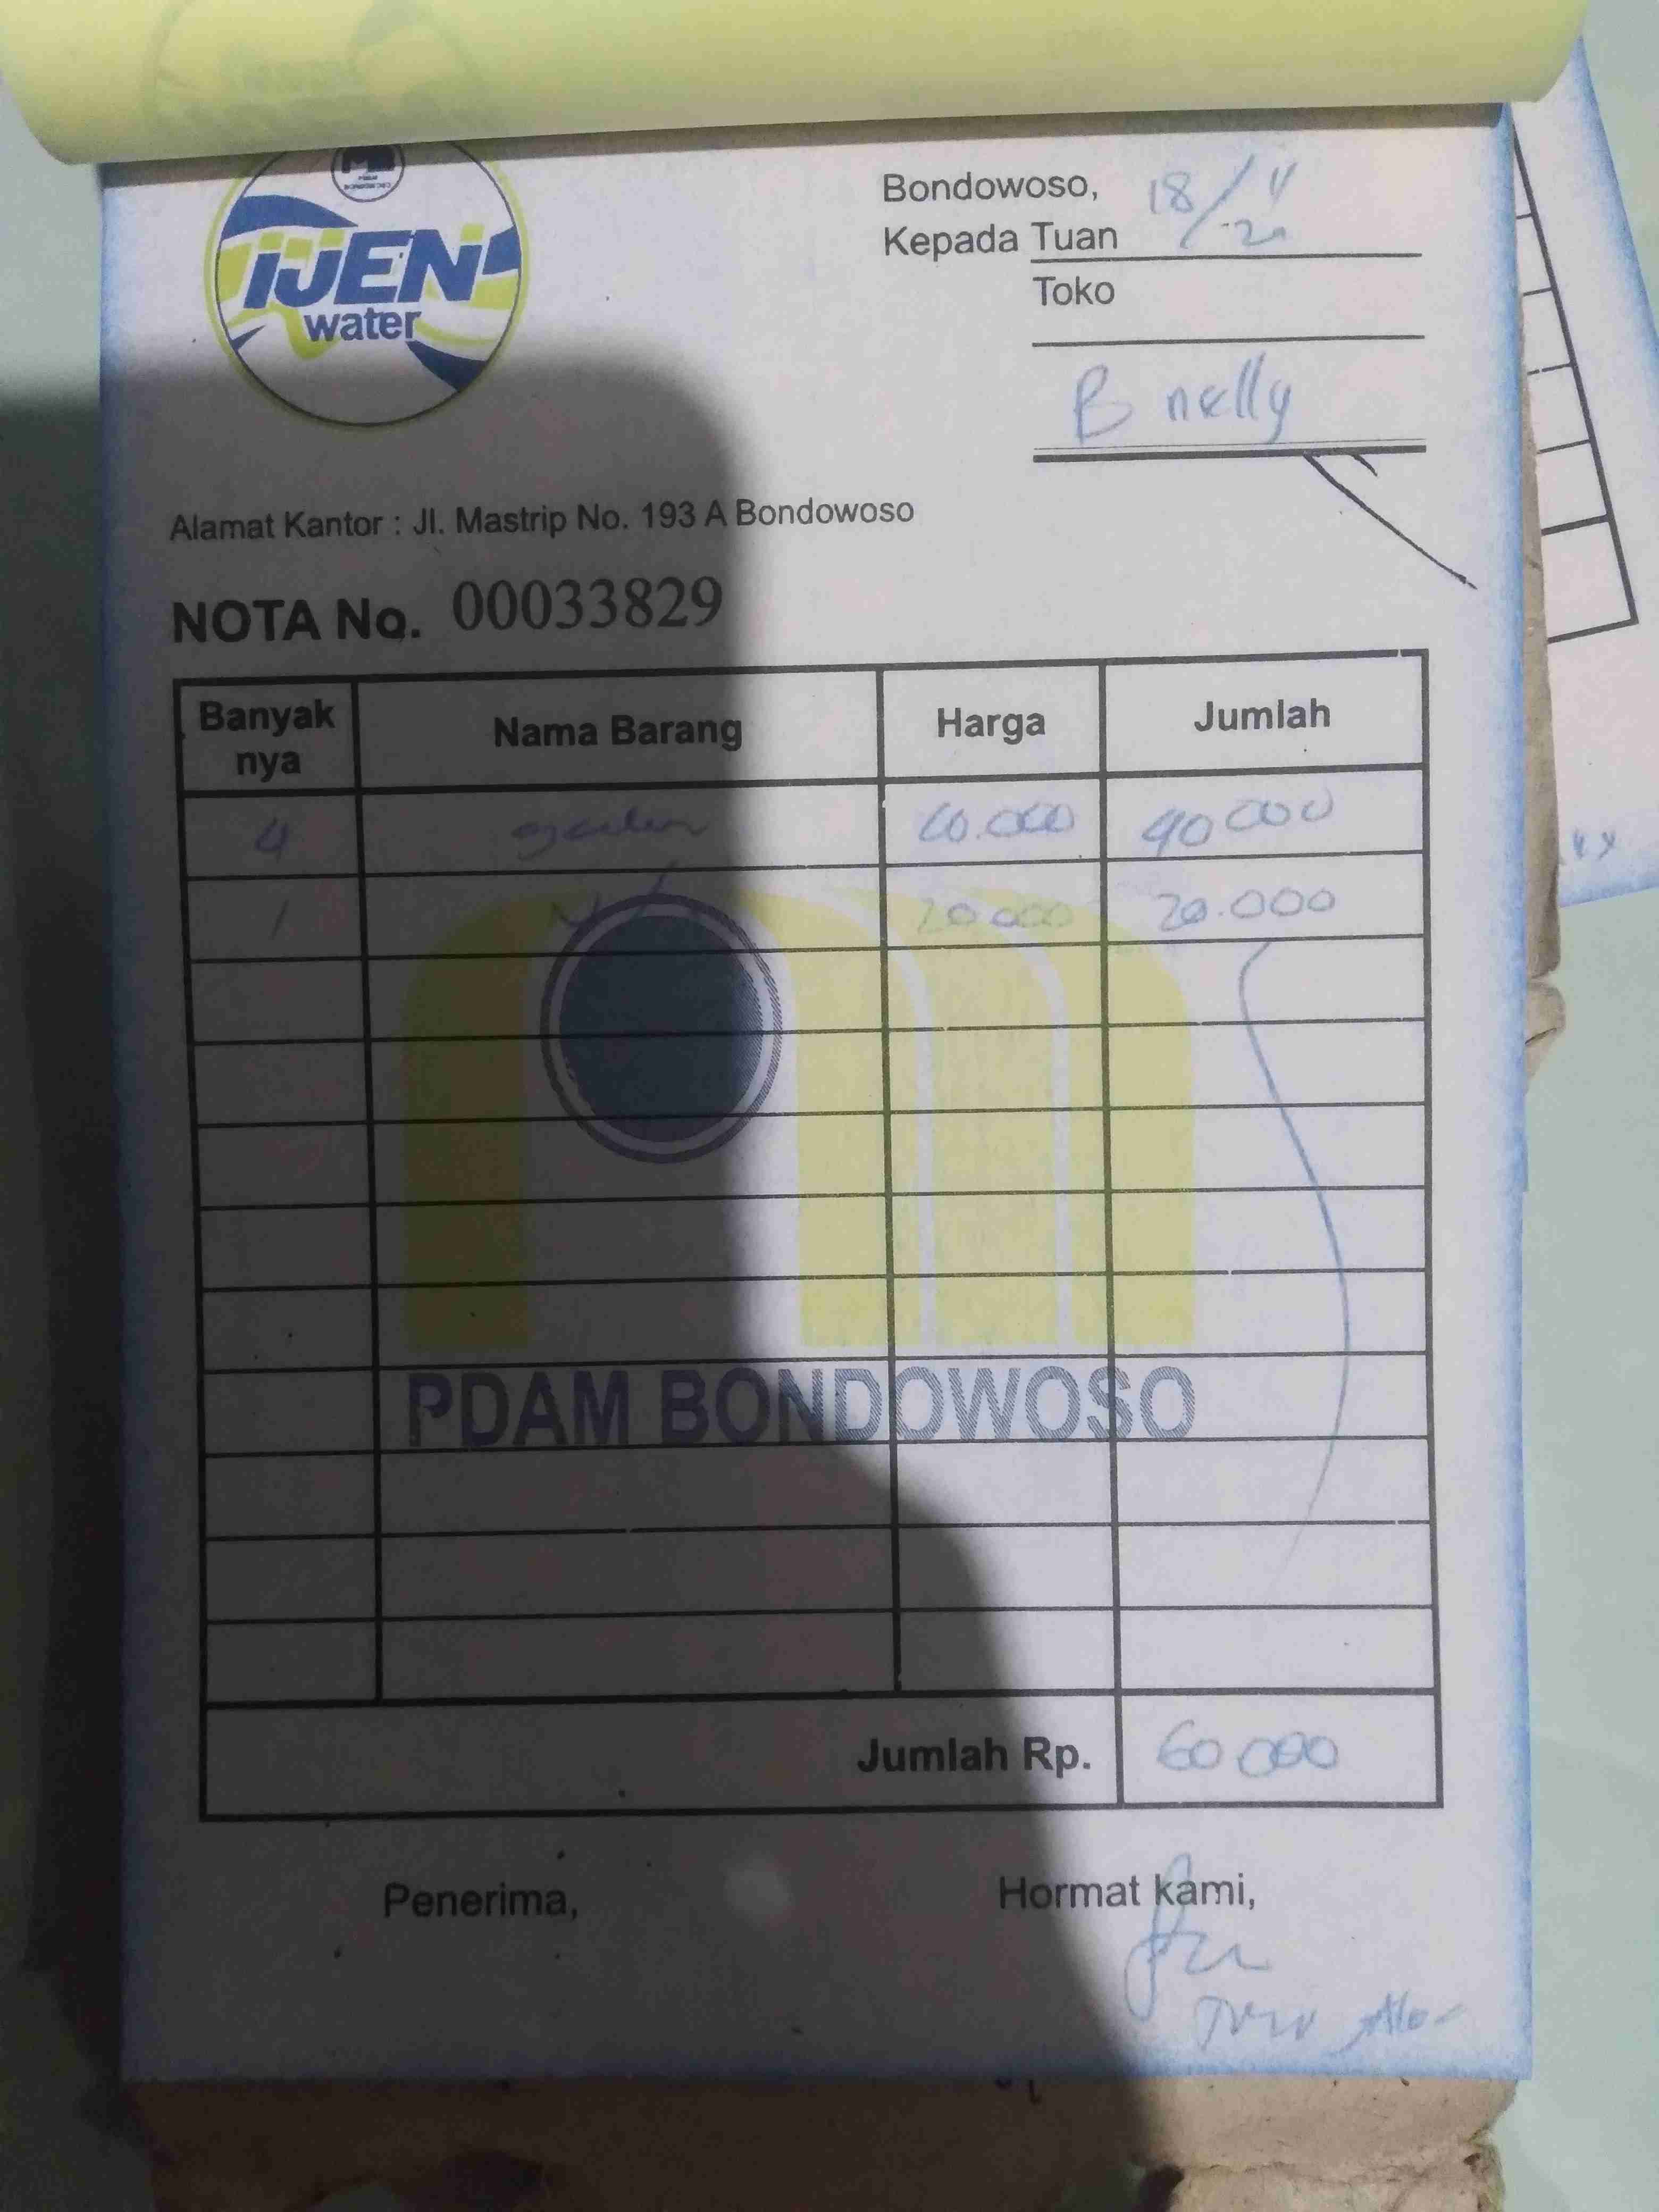 iJEN
water
Bondowoso, 18/11
Kepada Tuan -20
Toko
B nelly
Alamat Kantor : Jl. Mastrip No. 193 A Bondowoso
NOTA No. 00033829
Banyak nya Nama Barang Harga Jumlah
4 galon 10.000 40 000
1 20 000 20.000
PDAM BONDOWOSO
Jumlah Rp. 60 000
Penerima, Hormat kami,